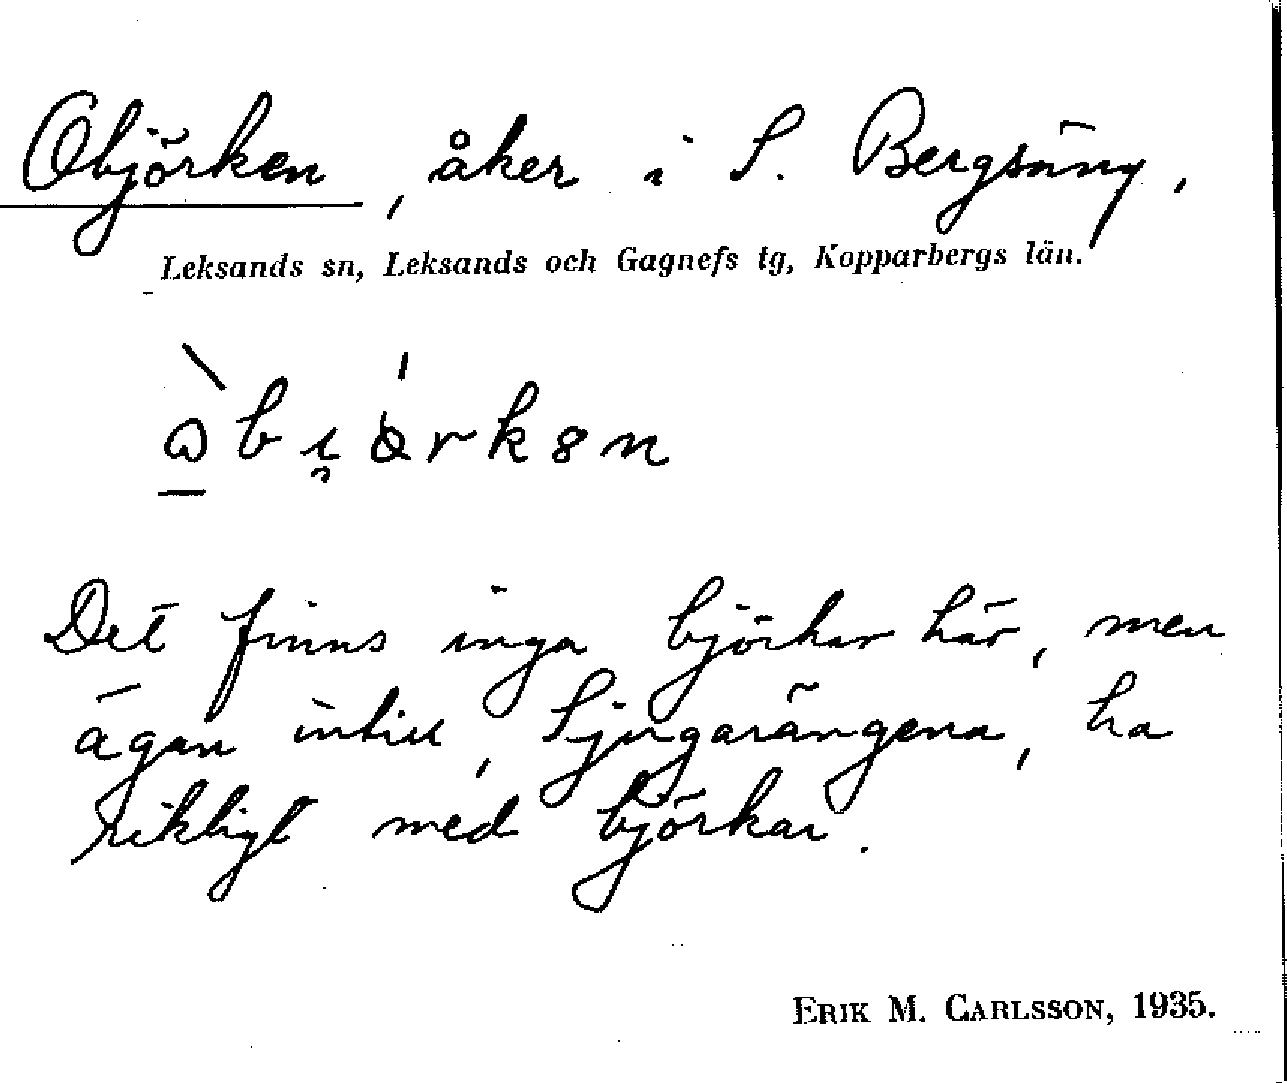 Objörken, åker i S. Bergsäng,
Leksands sn, Leksands och Gagnefs tg, Kopparbergs län.
Det finns inga björkar här, men
ägan intill, Sjugarängena, ha
rikligt med björkar.
ERIK M. CARLSSON, 1935.